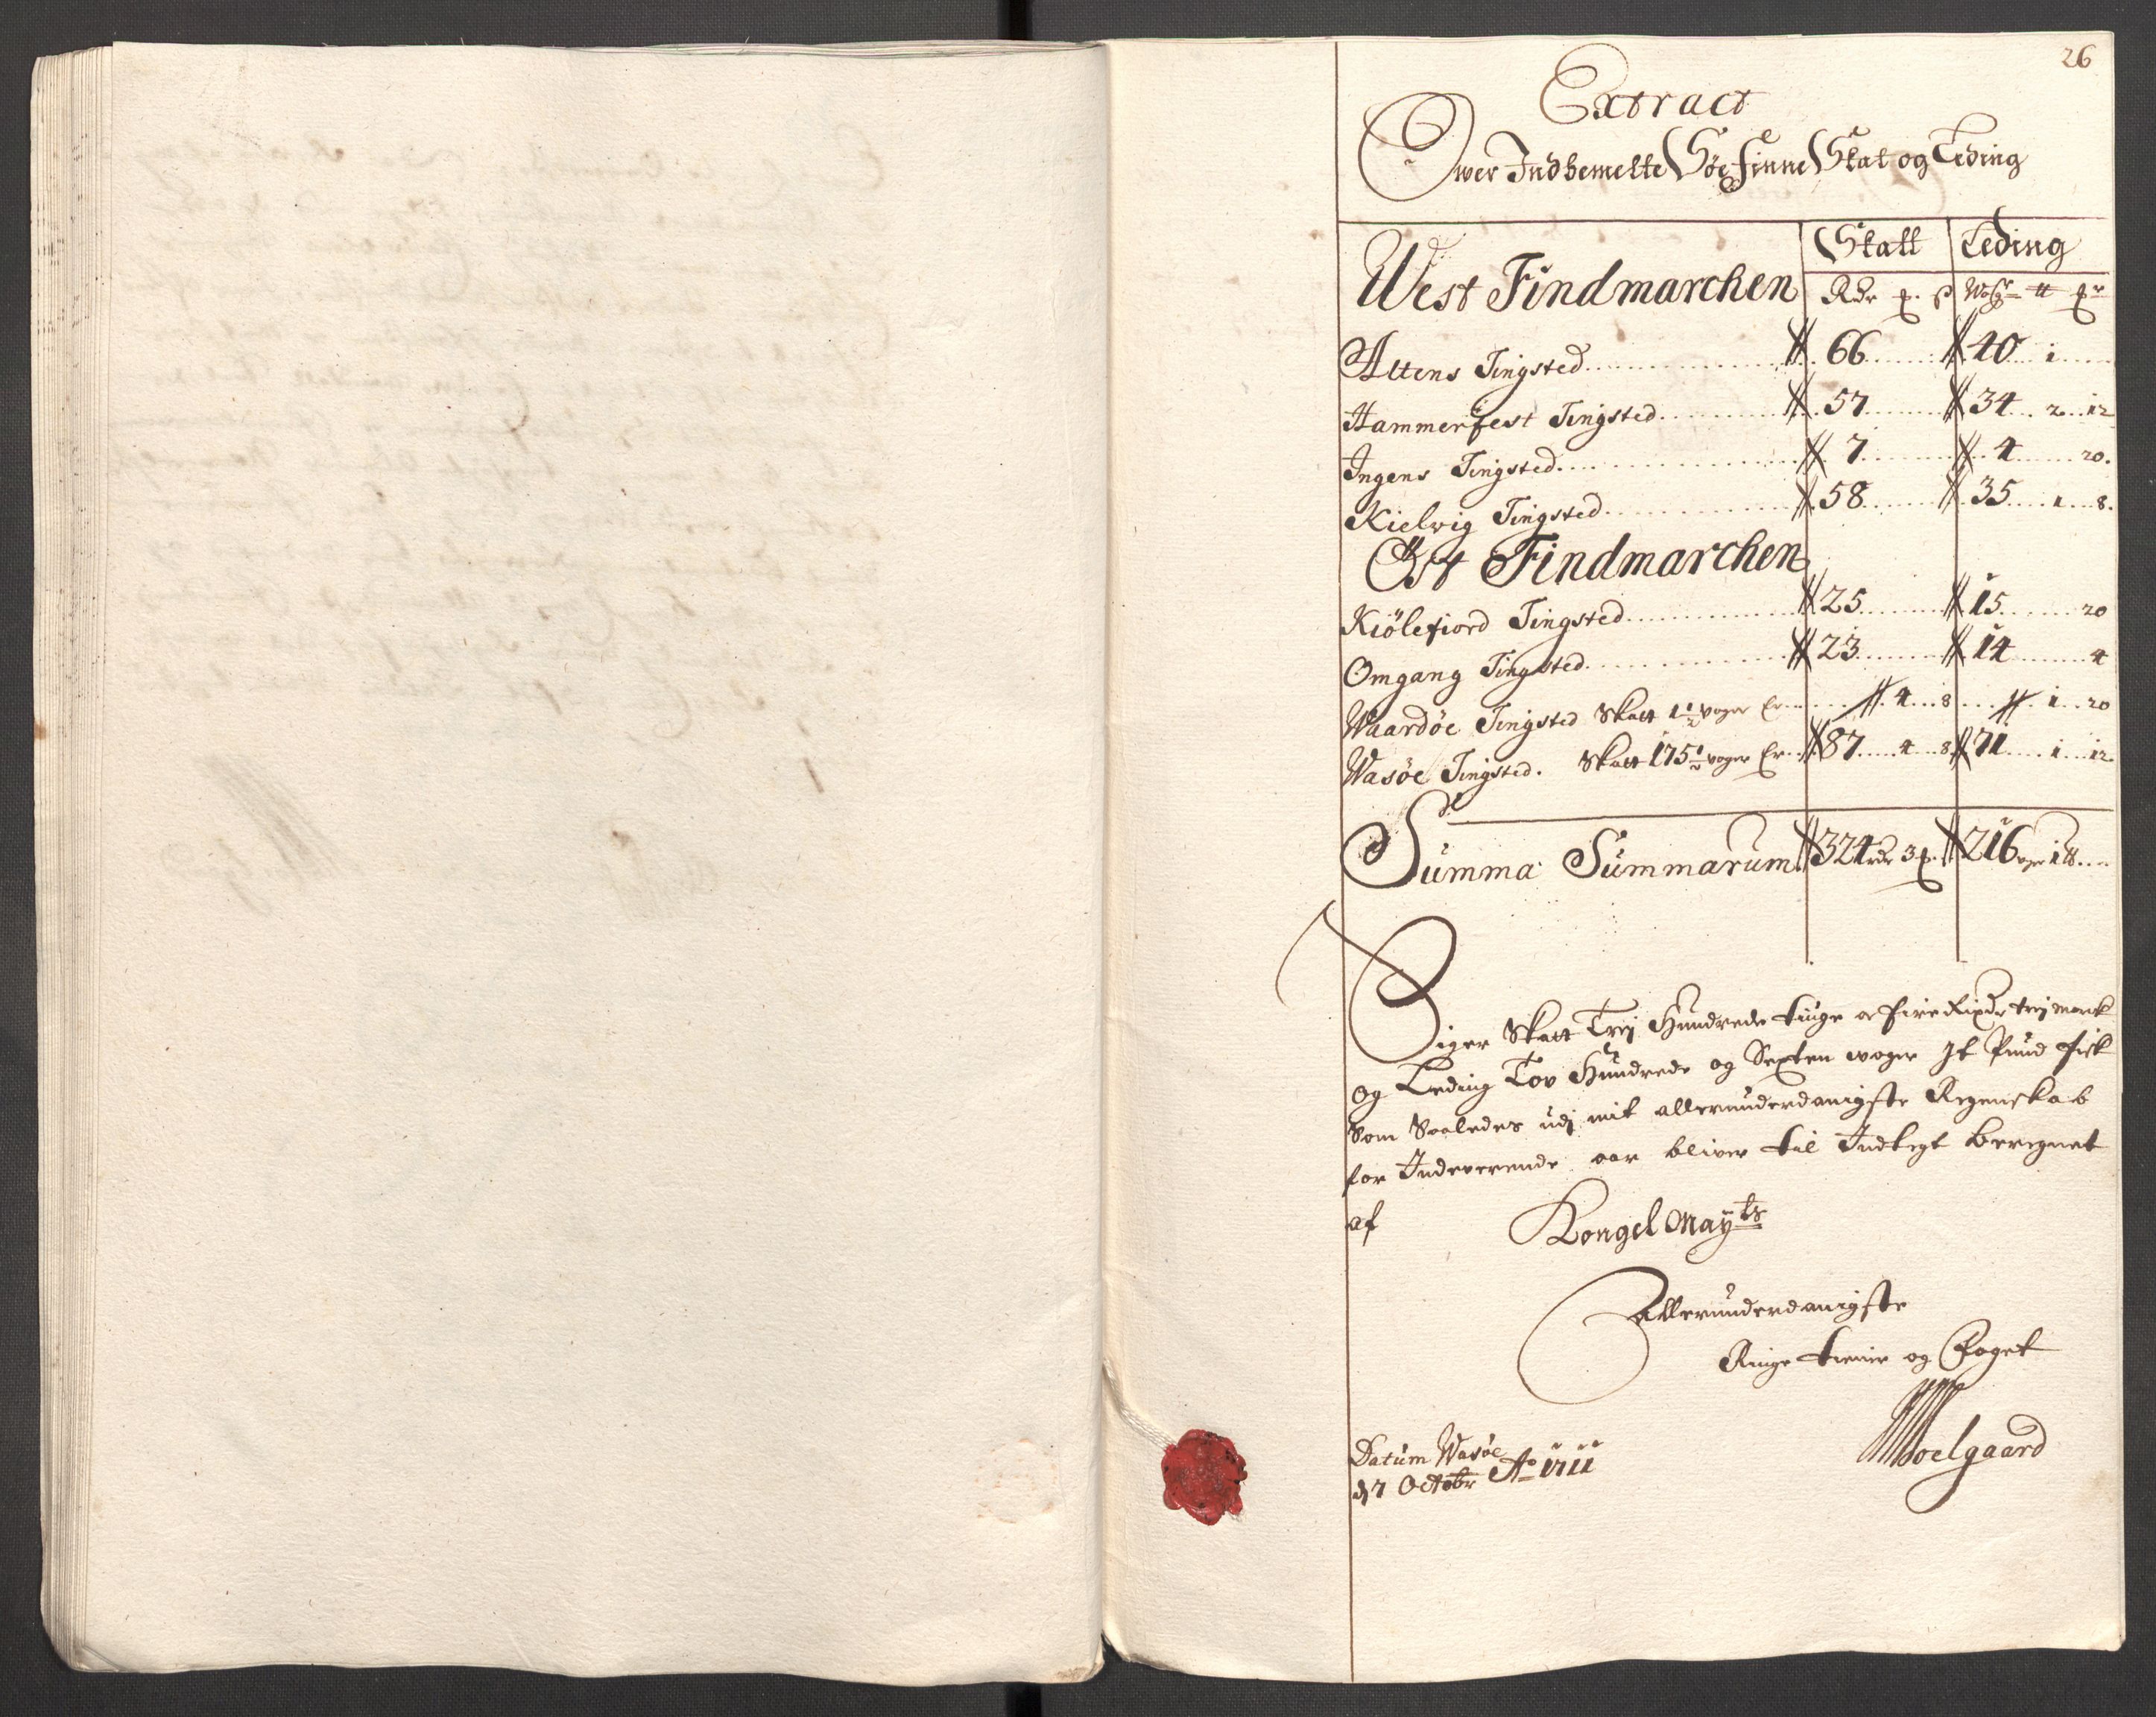 26
Extract
Over Indbemelte Söe Finne Skat og Leding
West Findmarchen
Skatt Leding
Rdr ꝑ. ß Woger ℔ ꝑr
Altens Tingsted 66 40 1
Hammerfest Tingsted 57 34 2 12
Ingens Tingsted 7 4 20.
Kielvig Tingsted 58 35 1 8.
Øst Findmarchen
Kiölefiord Tingsted 25 15 20
Omgang Tingsted 23 14 4
Waardöe Tingsted Skatt 1½ voger Er 4 8 1 20
Wasöe Tingsted. Skatt 175½ voger Er 87 4 8 71 1 12
Summa Summarum 324 rdr 3 ꝑ. 216 vger 1 ℔
Siger Skatt Trej Hundrede tiuge og fire Rixdr trej mark
og Leding Tov Hundrede og Sexten woger Jt Pund fisk
Som Saaledes udj mit allerunderdanigste Regenskab
for Indeverende aar bliver til Indtegt beregnet
af
Kongel Mayts
Allerunderdanigste
Ringe tienir og Foget
Datum Wasöe
d 7 Octobr Ao 1711
Soelgaard